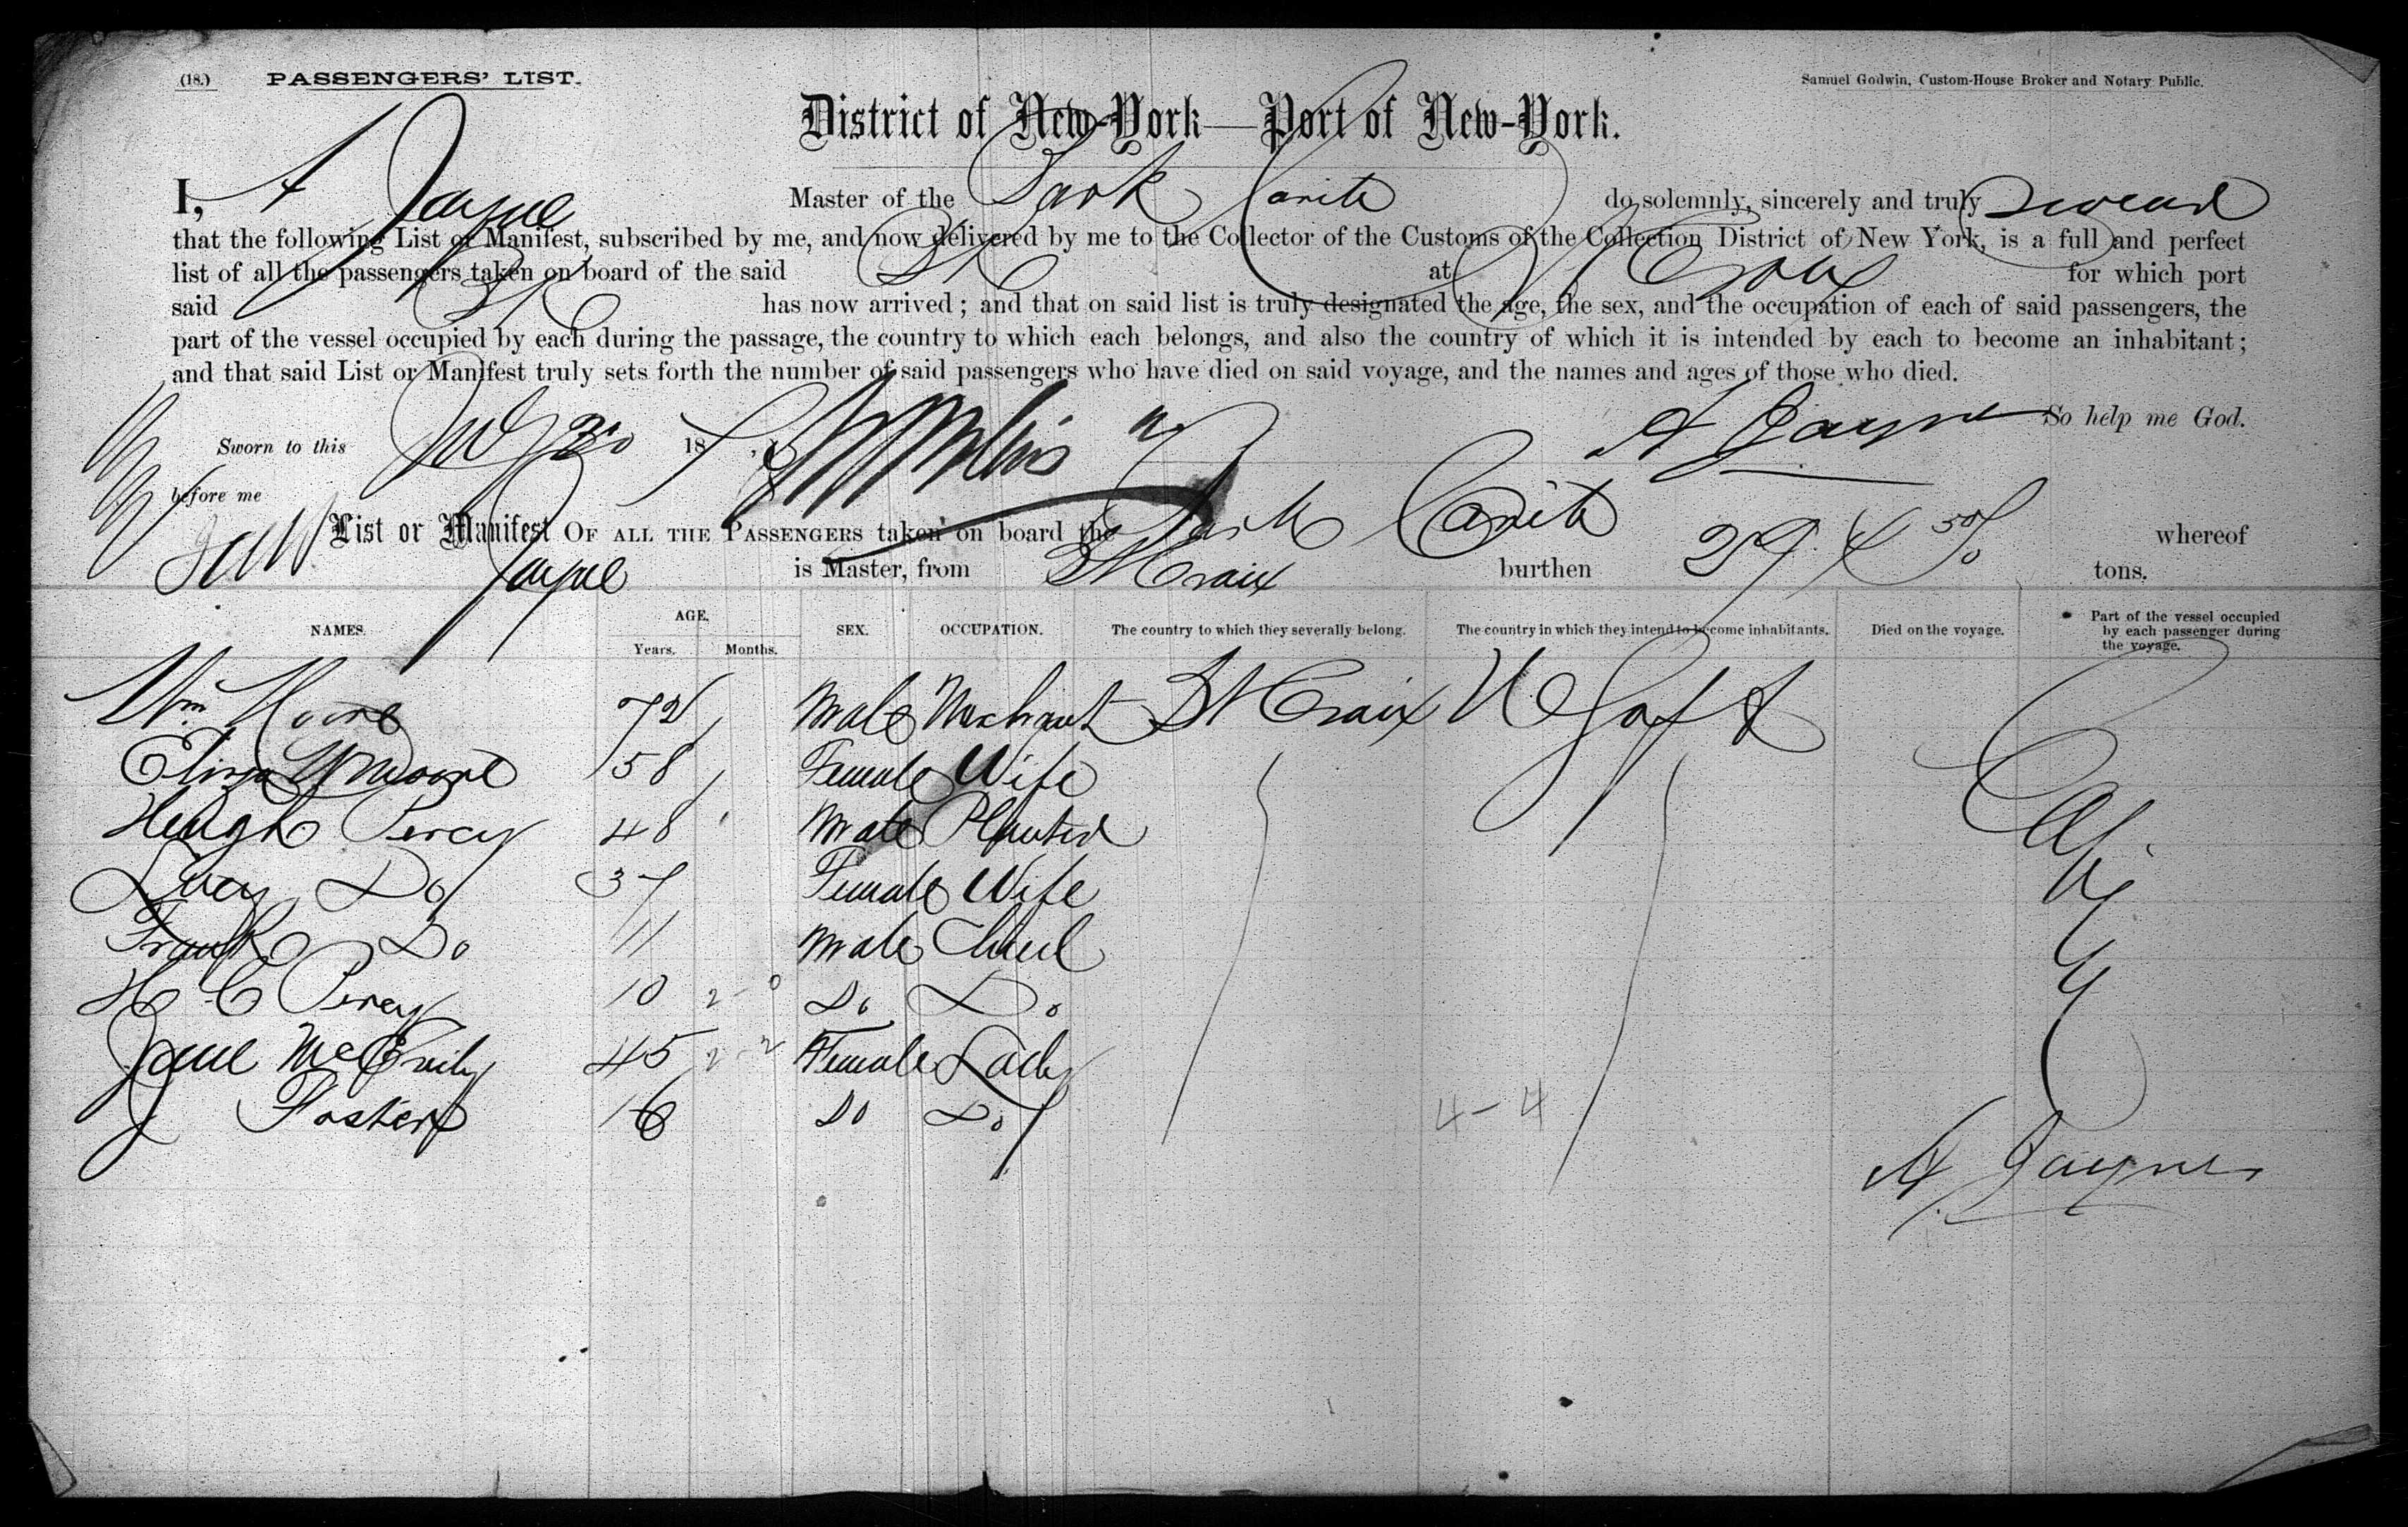 (18.) PASSENGERS' LIST. Samuel Godwin, Custom-House Broker and Notary Public.
District of New-York—Port of New-York.
I, A Jayne Master of the Bark Carib do solemnly, sincerely and truly swear
that the following List or Manifest, subscribed by me, and now delivered by me to the Collector of the Customs of the Collection District of New York, is a full and perfect
list of all the passengers taken on board of the said Bk at St Croix for which port
said Bk has now arrived; and that on said list is truly designated the age, the sex, and the occupation of each of said passengers, the
part of the vessel occupied by each during the passage, the country to which each belongs, and also the country of which it is intended by each to become an inhabitant;
and that said List or Manifest truly sets forth the number of said passengers who have died on said voyage, and the names and ages of those who died.
Sworn to this 18 A Jayne So help me God.
before me
List or Manifest OF ALL THE PASSENGERS taken on board the Bark Carib whereof
Jayne is Master, from St Croix burthen 294 50/ tons.
NAMES. AGE. Years. Months. SEX. OCCUPATION. The country to which they severally belong. The country in which they intend to become inhabitants. Died on the voyage. Part of the vessel occupied by each passenger during the voyage.
Wm Moore 72 Male Merchant St Croix U S of A
Eliza W Moore 58 Female Wife
Heugh Percy 48 Male Planter
Lucy Do 37 Female Wife
Frank Do 11 Male Child
H C Percy 10 2-0 Do Do
Jane McEvily 45 2-2 Female Lady
J Foster 16 Do Do 4-4
A Jayne